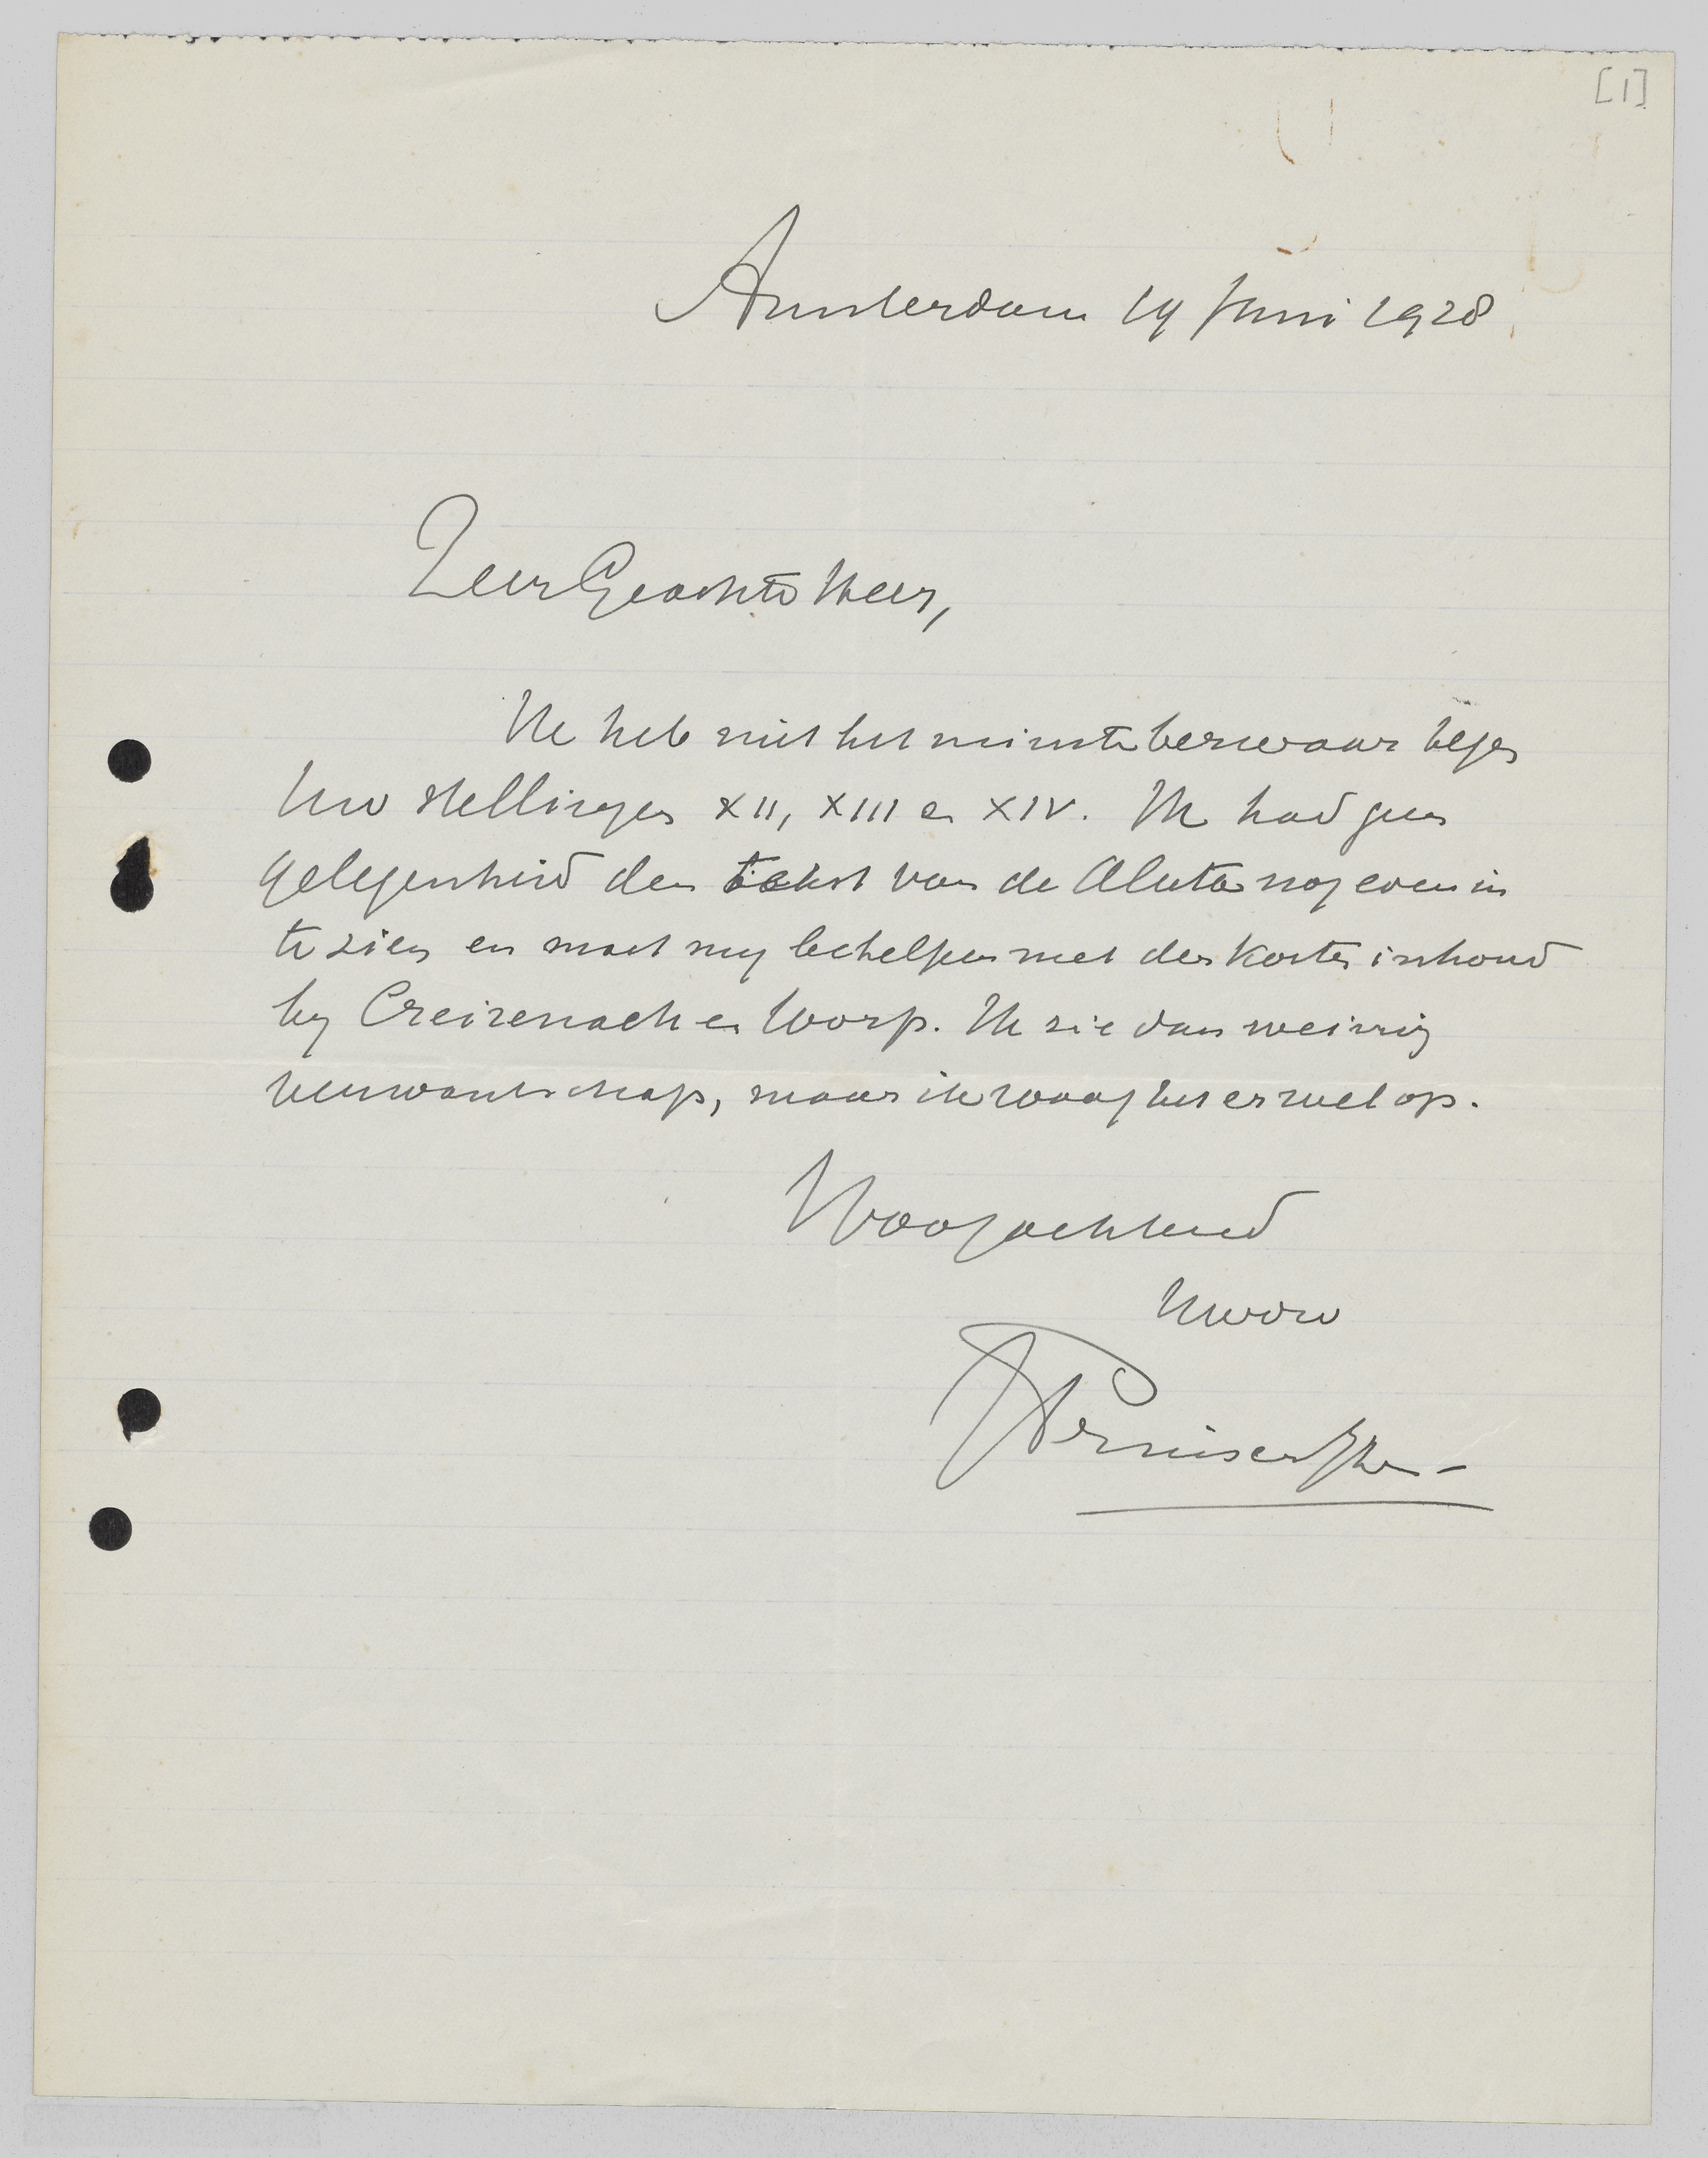 [1]
Amsterdam 14 Juni 1928
Zeer Geachte Heer,
Ik heb niet het minste bezwaar tegen
Uw stellingen XII, XIII en XIV. Ik had geen
gelegenheid den tekst van de Aluta nog even in
te zien en moet my behelpen met den korten inhoud
by Creizenach en Worp. Ik zie dan weinig
verwantschap, maar ik waag het er wel op.
Hoogachtend
Uwdw